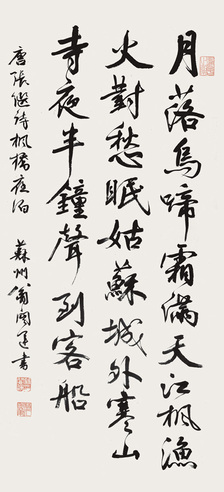 月落烏啼霜滿天江楓漁
火對愁眠姑蘇城外寒山
寺夜半鐘聲到客船
唐張繼詩楓橋夜泊
蘇州翁闓運書